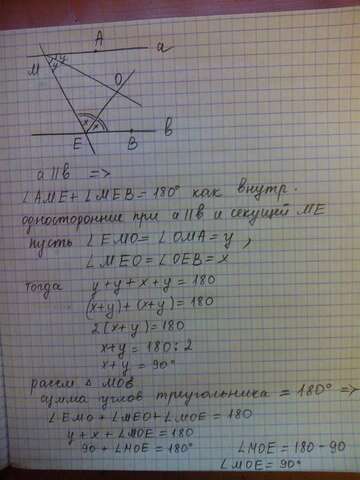 A
a
M
y
y
O
x
x
E
B
b
a || b =>
∠AME + ∠MEB = 180° как внутр.
односторонние при a || b и секущей ME
пусть ∠EMO = ∠OMA = y,
∠MEO = ∠OEB = x
Тогда y + y + x + y = 180
(x+y) + (x+y) = 180
2(x+y) = 180
x+y = 180 : 2
x + y = 90°
рассм △ MOB
сумма углов треугольника = 180° =>
∠EMO + ∠MEO + ∠MOE = 180
y + x + ∠MOE = 180
90 + ∠MOE = 180° ∠MOE = 180 - 90
∠MOE = 90°